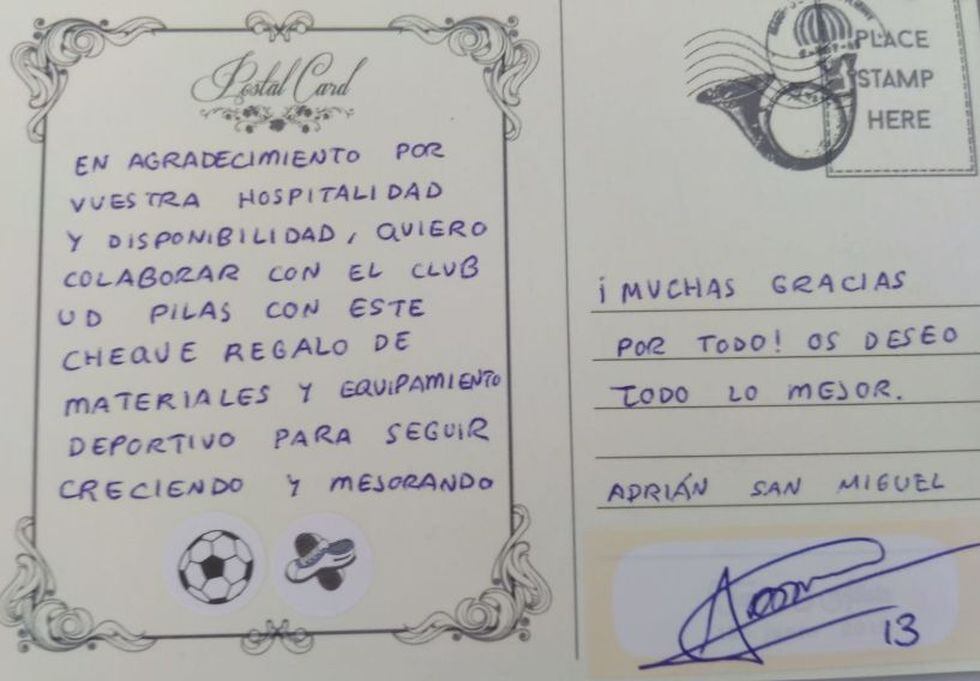 Postal Card
EN AGRADECIMIENTO POR
VUESTRA HOSPITALIDAD
Y DISPONIBILIDAD, QUIERO
COLABORAR CON EL CLUB
UD PILAS CON ESTE
CHEQUE REGALO DE
MATERIALES Y EQUIPAMIENTO
DEPORTIVO PARA SEGUIR
CRECIENDO Y MEJORANDO
PLACE
STAMP
HERE
¡MUCHAS GRACIAS
POR TODO! OS DESEO
TODO LO MEJOR.
ADRIÁN SAN MIGUEL
13